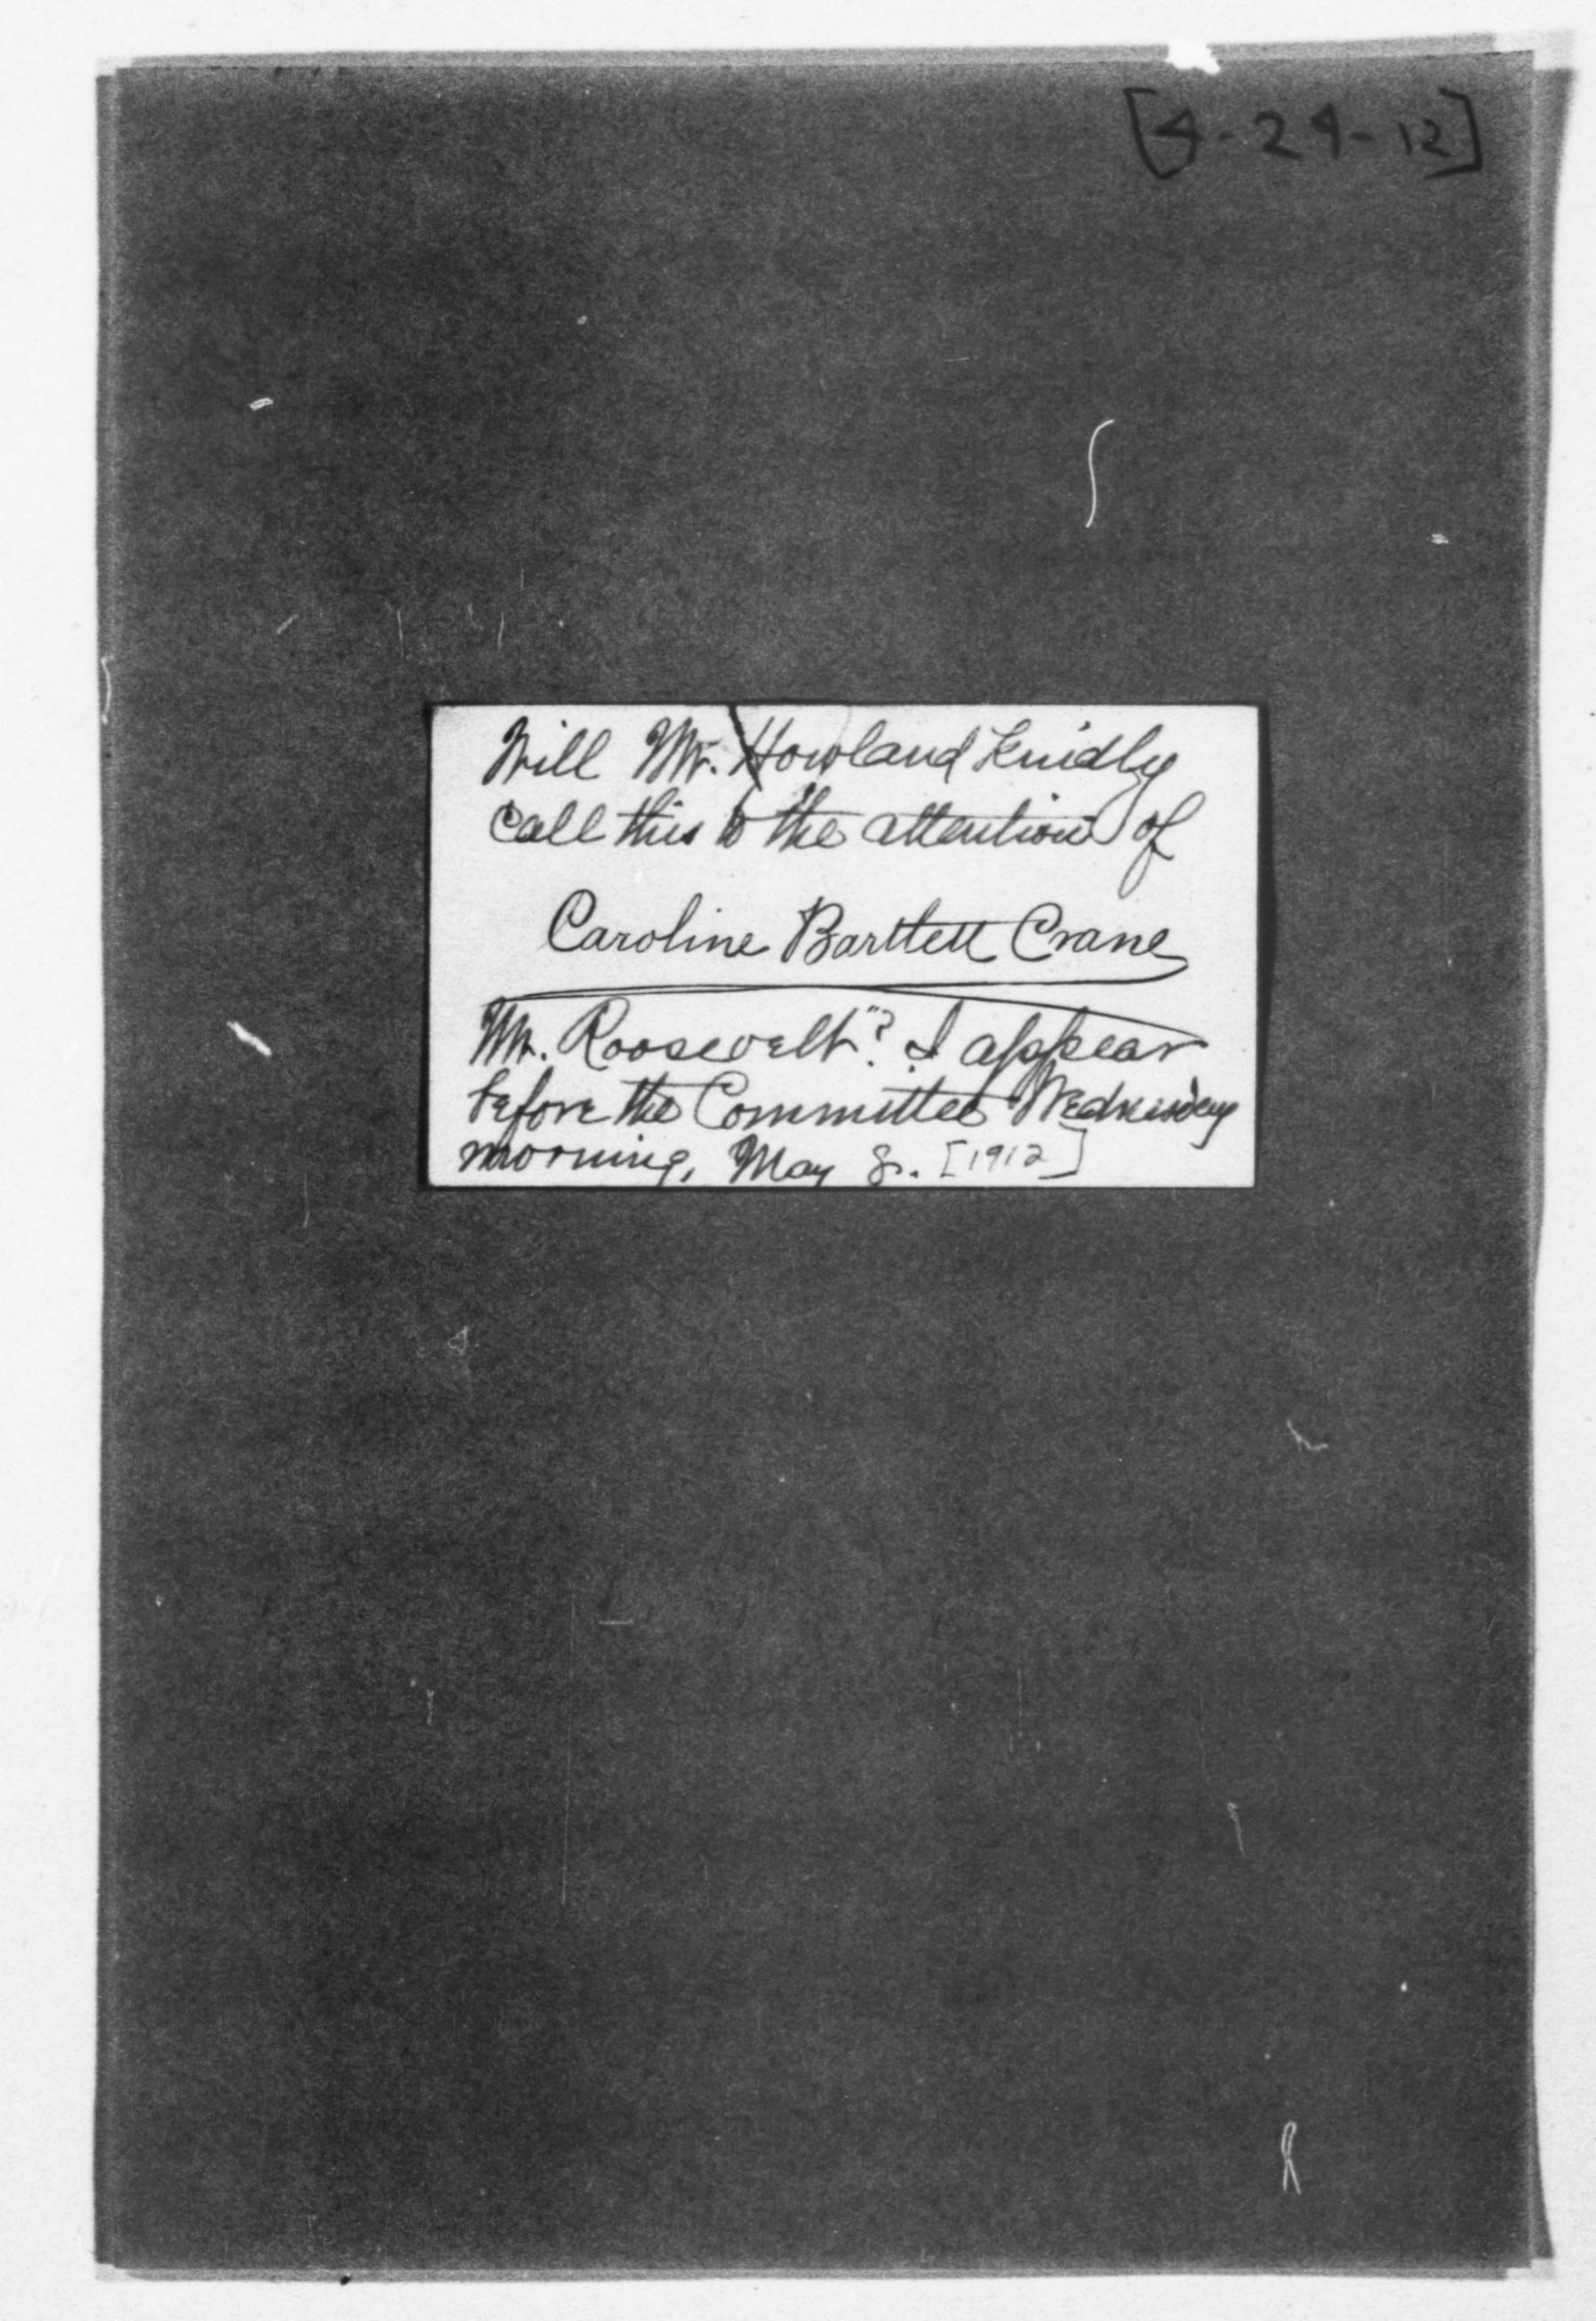 [4-24-12]
Will Mr. Howland kindly
call this to the attention of
Caroline Bartlett Crane
Mr. Roosevelt? I appear
before the Committee Wednesday
morning, May 8. [1912]